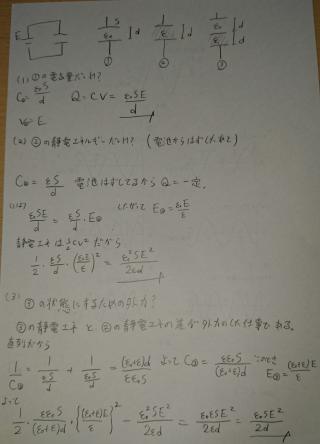 E S ε₀ d ① ε d ② ε₀ ε d d ③
(1) ①の電気量だけ?
C① = ε₀S/d Q = CV = ε₀SE/d
V = E
(2) ②の静電エネルギーだけ? (電池からはずしたあと)
C② = εS/d 電池はずしてるから Q = 一定。
ε₀SE/d = εS/d・E② したがって E② = ε₀E/ε
静電エネは ½CV² だから
1/2・εS/d・(ε₀E/ε)² = ε₀²SE²/2εd
(3) ③の状態にするための外力?
③の静電エネと②の静電エネの差が外力のした仕事である。
直列だから
1/C③ = 1/(εS/d) + 1/(ε₀S/d) = (ε₀+ε)d/εε₀S よって C③ = εε₀S/(ε₀+ε)d このとき E③ = (ε₀+ε)E/ε
よって
1/2・εε₀S/(ε₀+ε)d・{(ε₀+ε)E/ε}² − ε₀²SE²/2εd = ε₀εSE²/2εd = ε₀SE²/2d